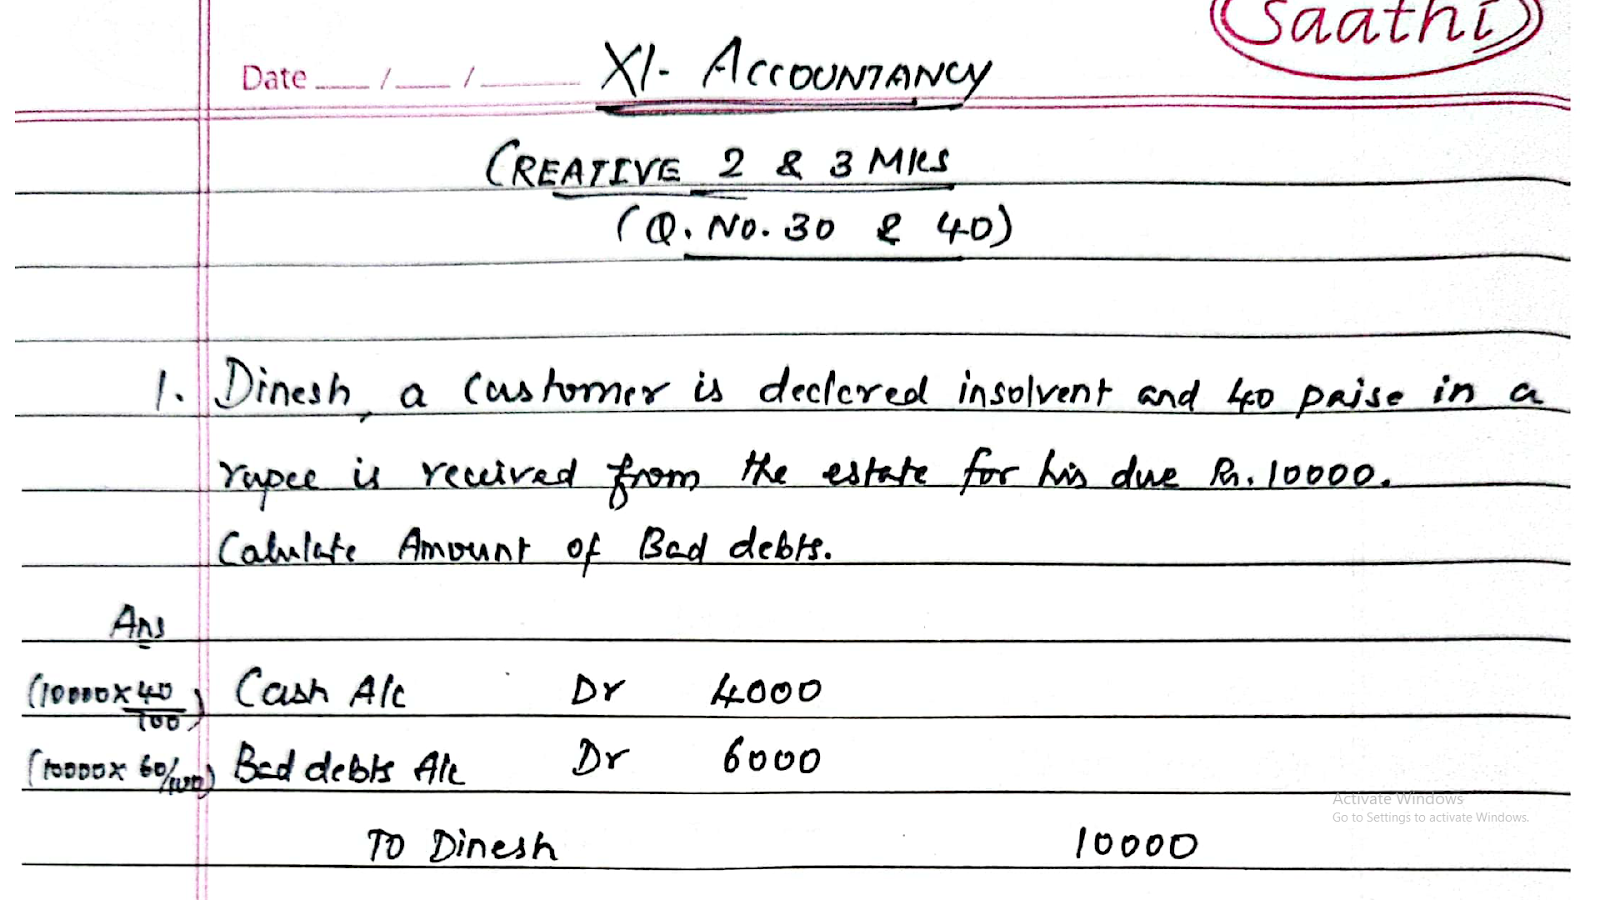 Saathi
Date ___/___/______ XI- ACCOUNTANCY
CREATIVE 2 & 3 MKS
(Q. No. 30 & 40)
1. Dinesh, a Customer is declered insolvent and 40 paise in a
rupee is received from the estate for his due Rs. 10000.
Calulate Amount of Bad debts.
Ans
(10000 x 40/100) Cash A/c Dr 4000
(10000 x 60/100) Bad debts A/c Dr 6000
To Dinesh 10000
Activate Windows
Go to Settings to activate Windows.